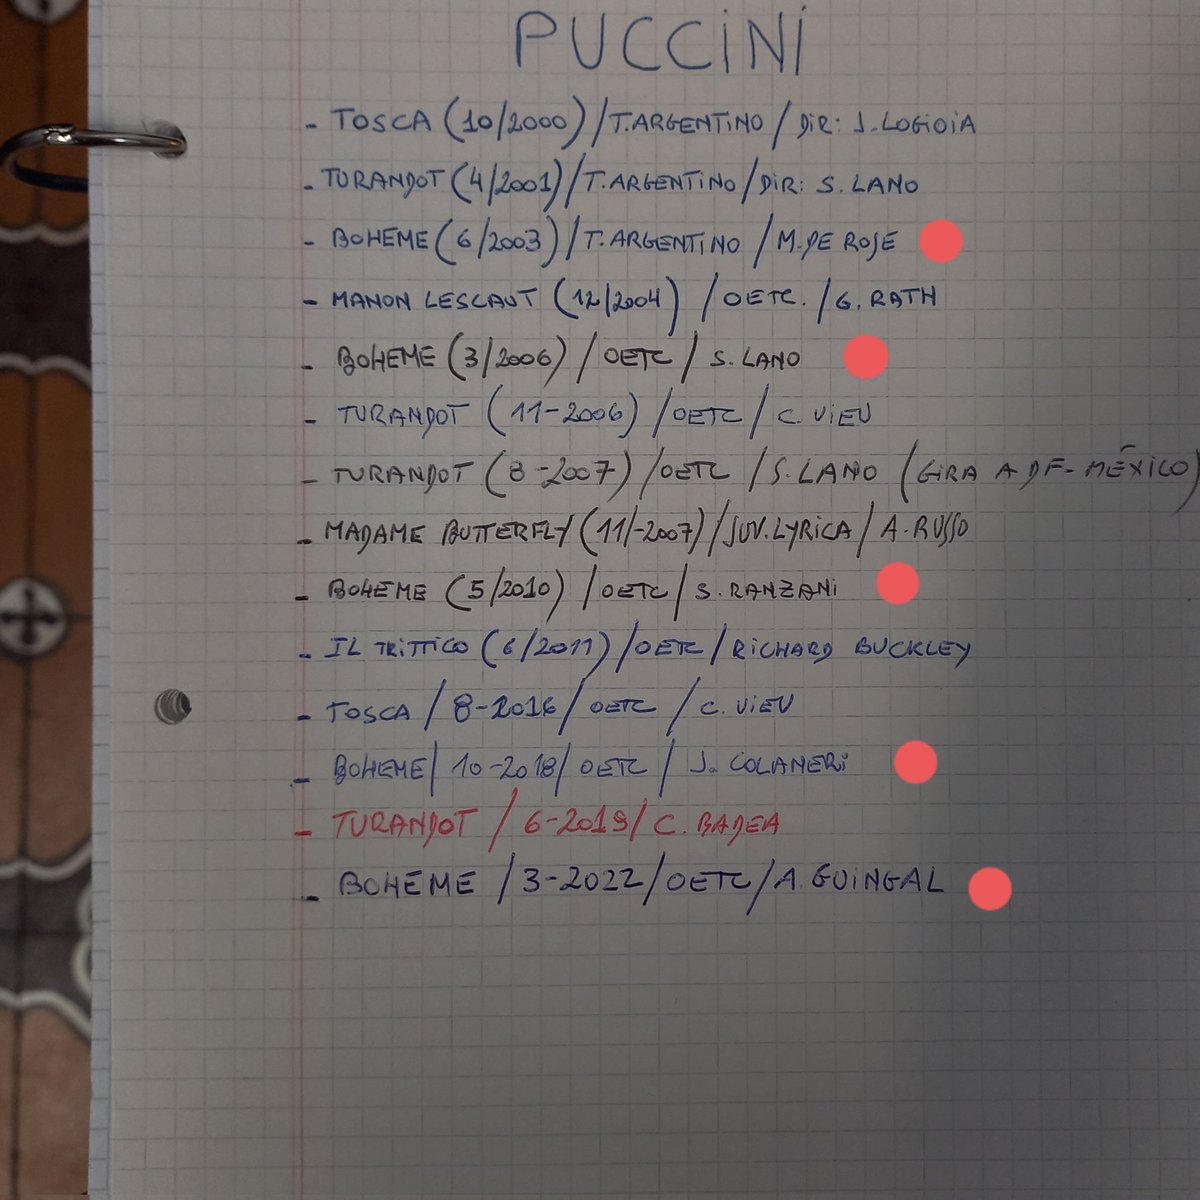 PUCCiNi
- TOSCA (10/2000)/T.ARGENTiNO/DiR: J.LOGiOiA
- TURANDOT (4/2001)/T.ARGENTiNO/DiR: S. LANO
- BOHEME (6/2003)/T.ARGENTiNO/M.DE ROSE
- MANON LESCAUT (12/2004) /OETC./G. RATH
- BOHEME (3/2006)/OETC/S. LANO
- TURANDOT (11-2006)/OETC/C. ViEU
- TURANDOT (8-2007)/OETC/S.LANO (GiRA A DF-MÉXiCO)
- MADAME BUTTERFLY (11/-2007)/JUV.LYRiCA/A.RUSSO
- BOHEME (5/2010)/OETC/S. RANZANi
- IL TRiTTiCO (6/2011)/OETC/RiCHARD BUCKLEY
- TOSCA/8-2016/OETC/C. ViEU
- BOHEME/10-2018/OETC/J. COLANERi
- TURANDOT/6-2019/C. BADEA
- BOHEME/3-2022/OETC/A. GUiNGAL